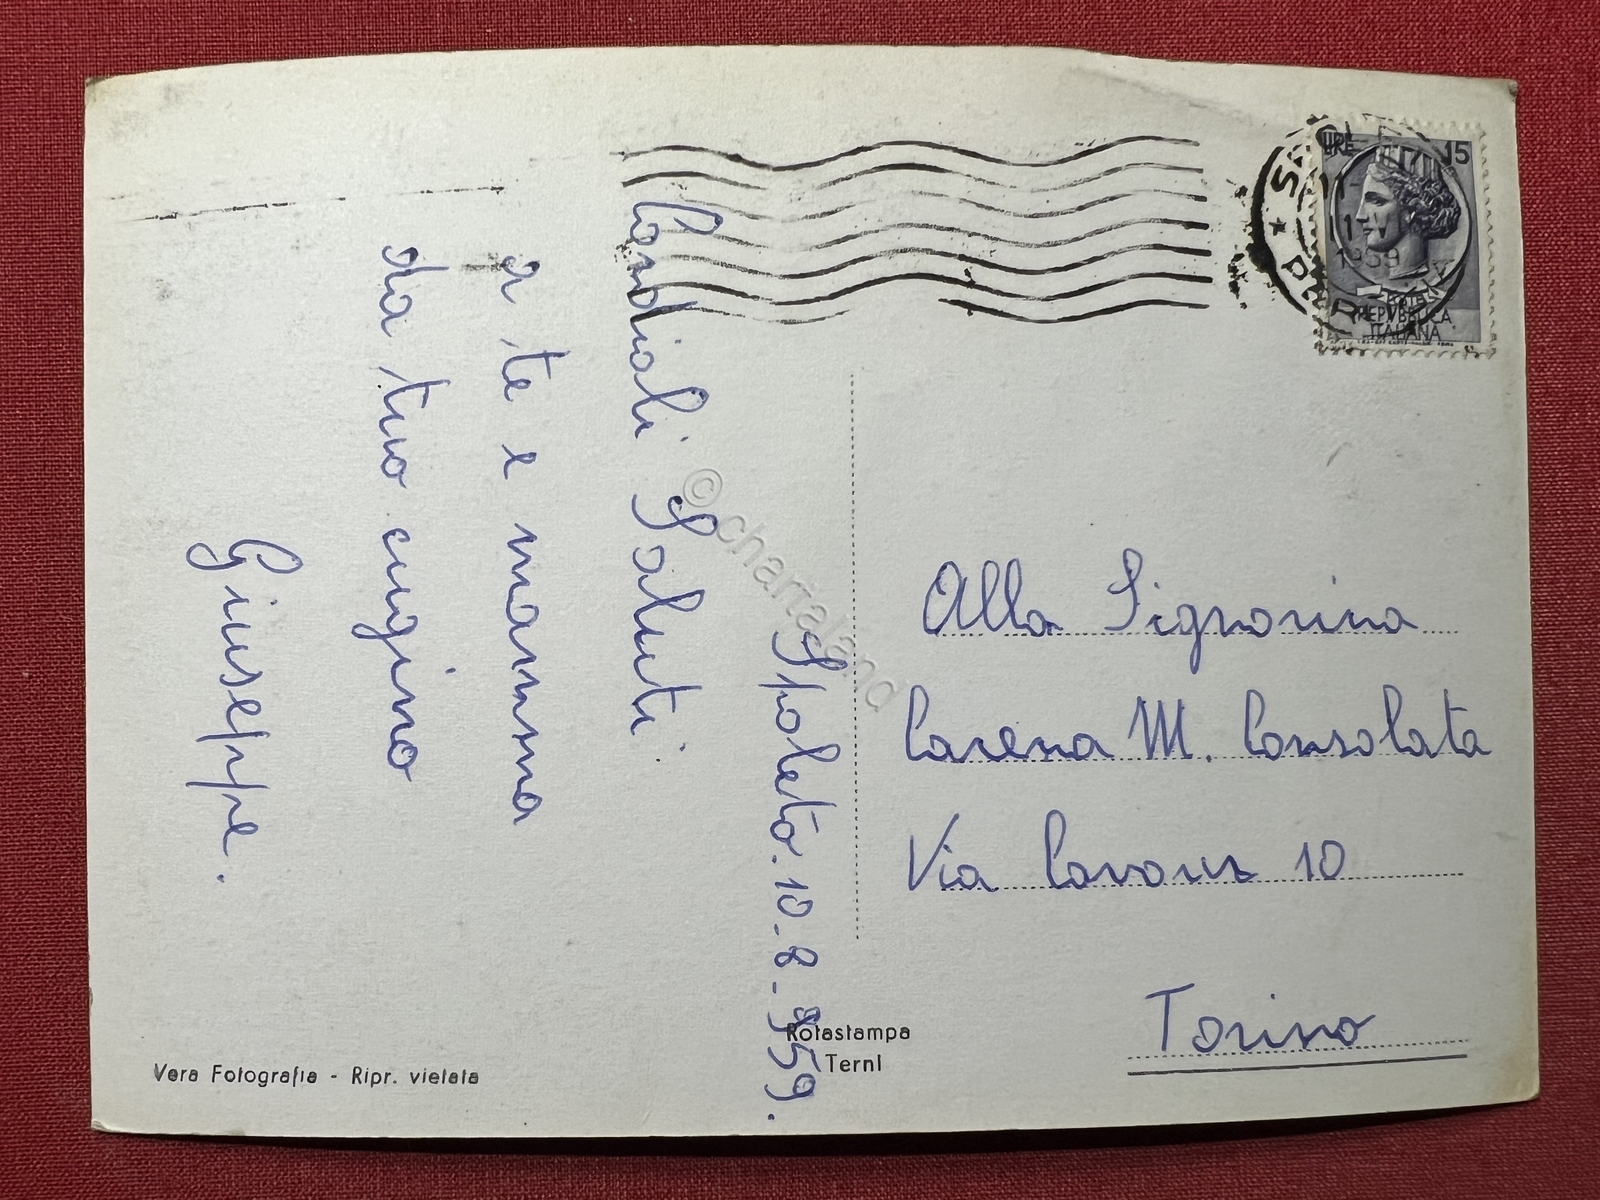 Spoleto. 10-8-959.
Cordiali Saluti
a te e mamma
da tuo cugino
Giuseppe.
Alla Signorina
Carena M. Consolata
Via Cavour 10
Torino
LIRE 15
1959
REPVBBLICA
ITALIANA
Rotastampa
Terni
Vera Fotografia - Ripr. vietata
© chartaland